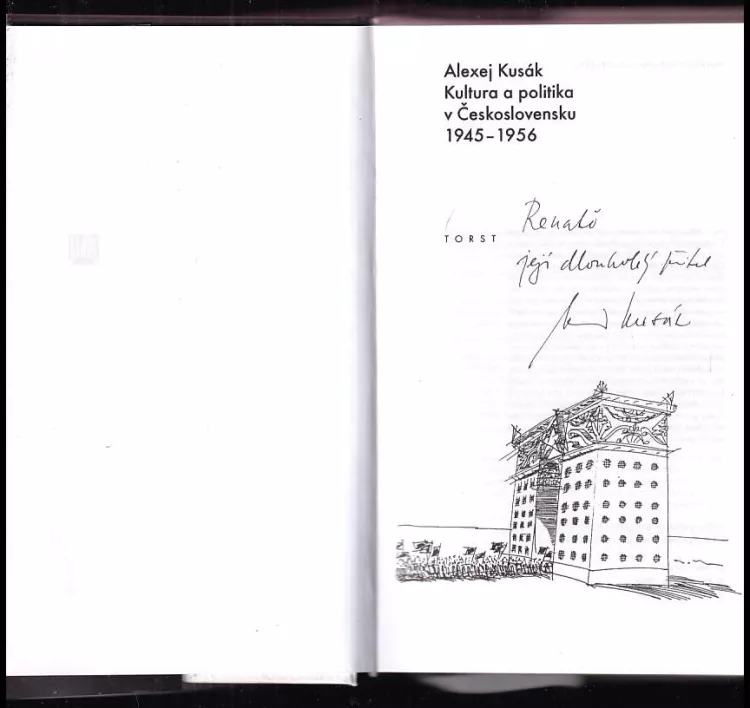 Alexej Kusák
Kultura a politika
v Československu
1945–1956
Renatě
TORST
její dlouholetý přítel
Kusák